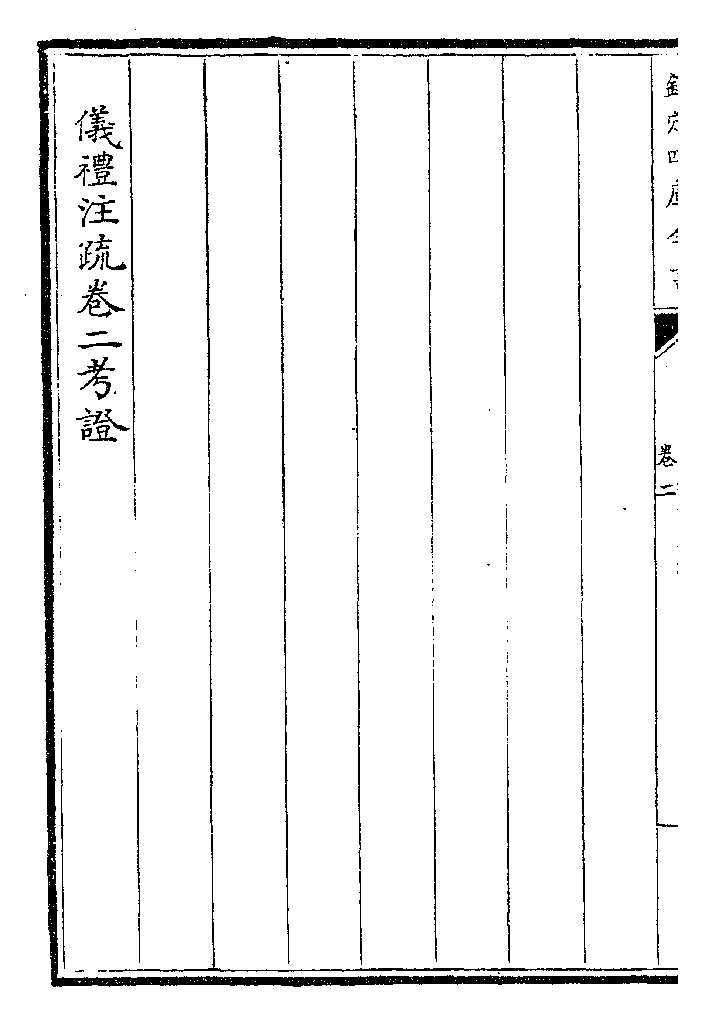 欽定四庫全書
卷二
儀禮注疏卷二考證